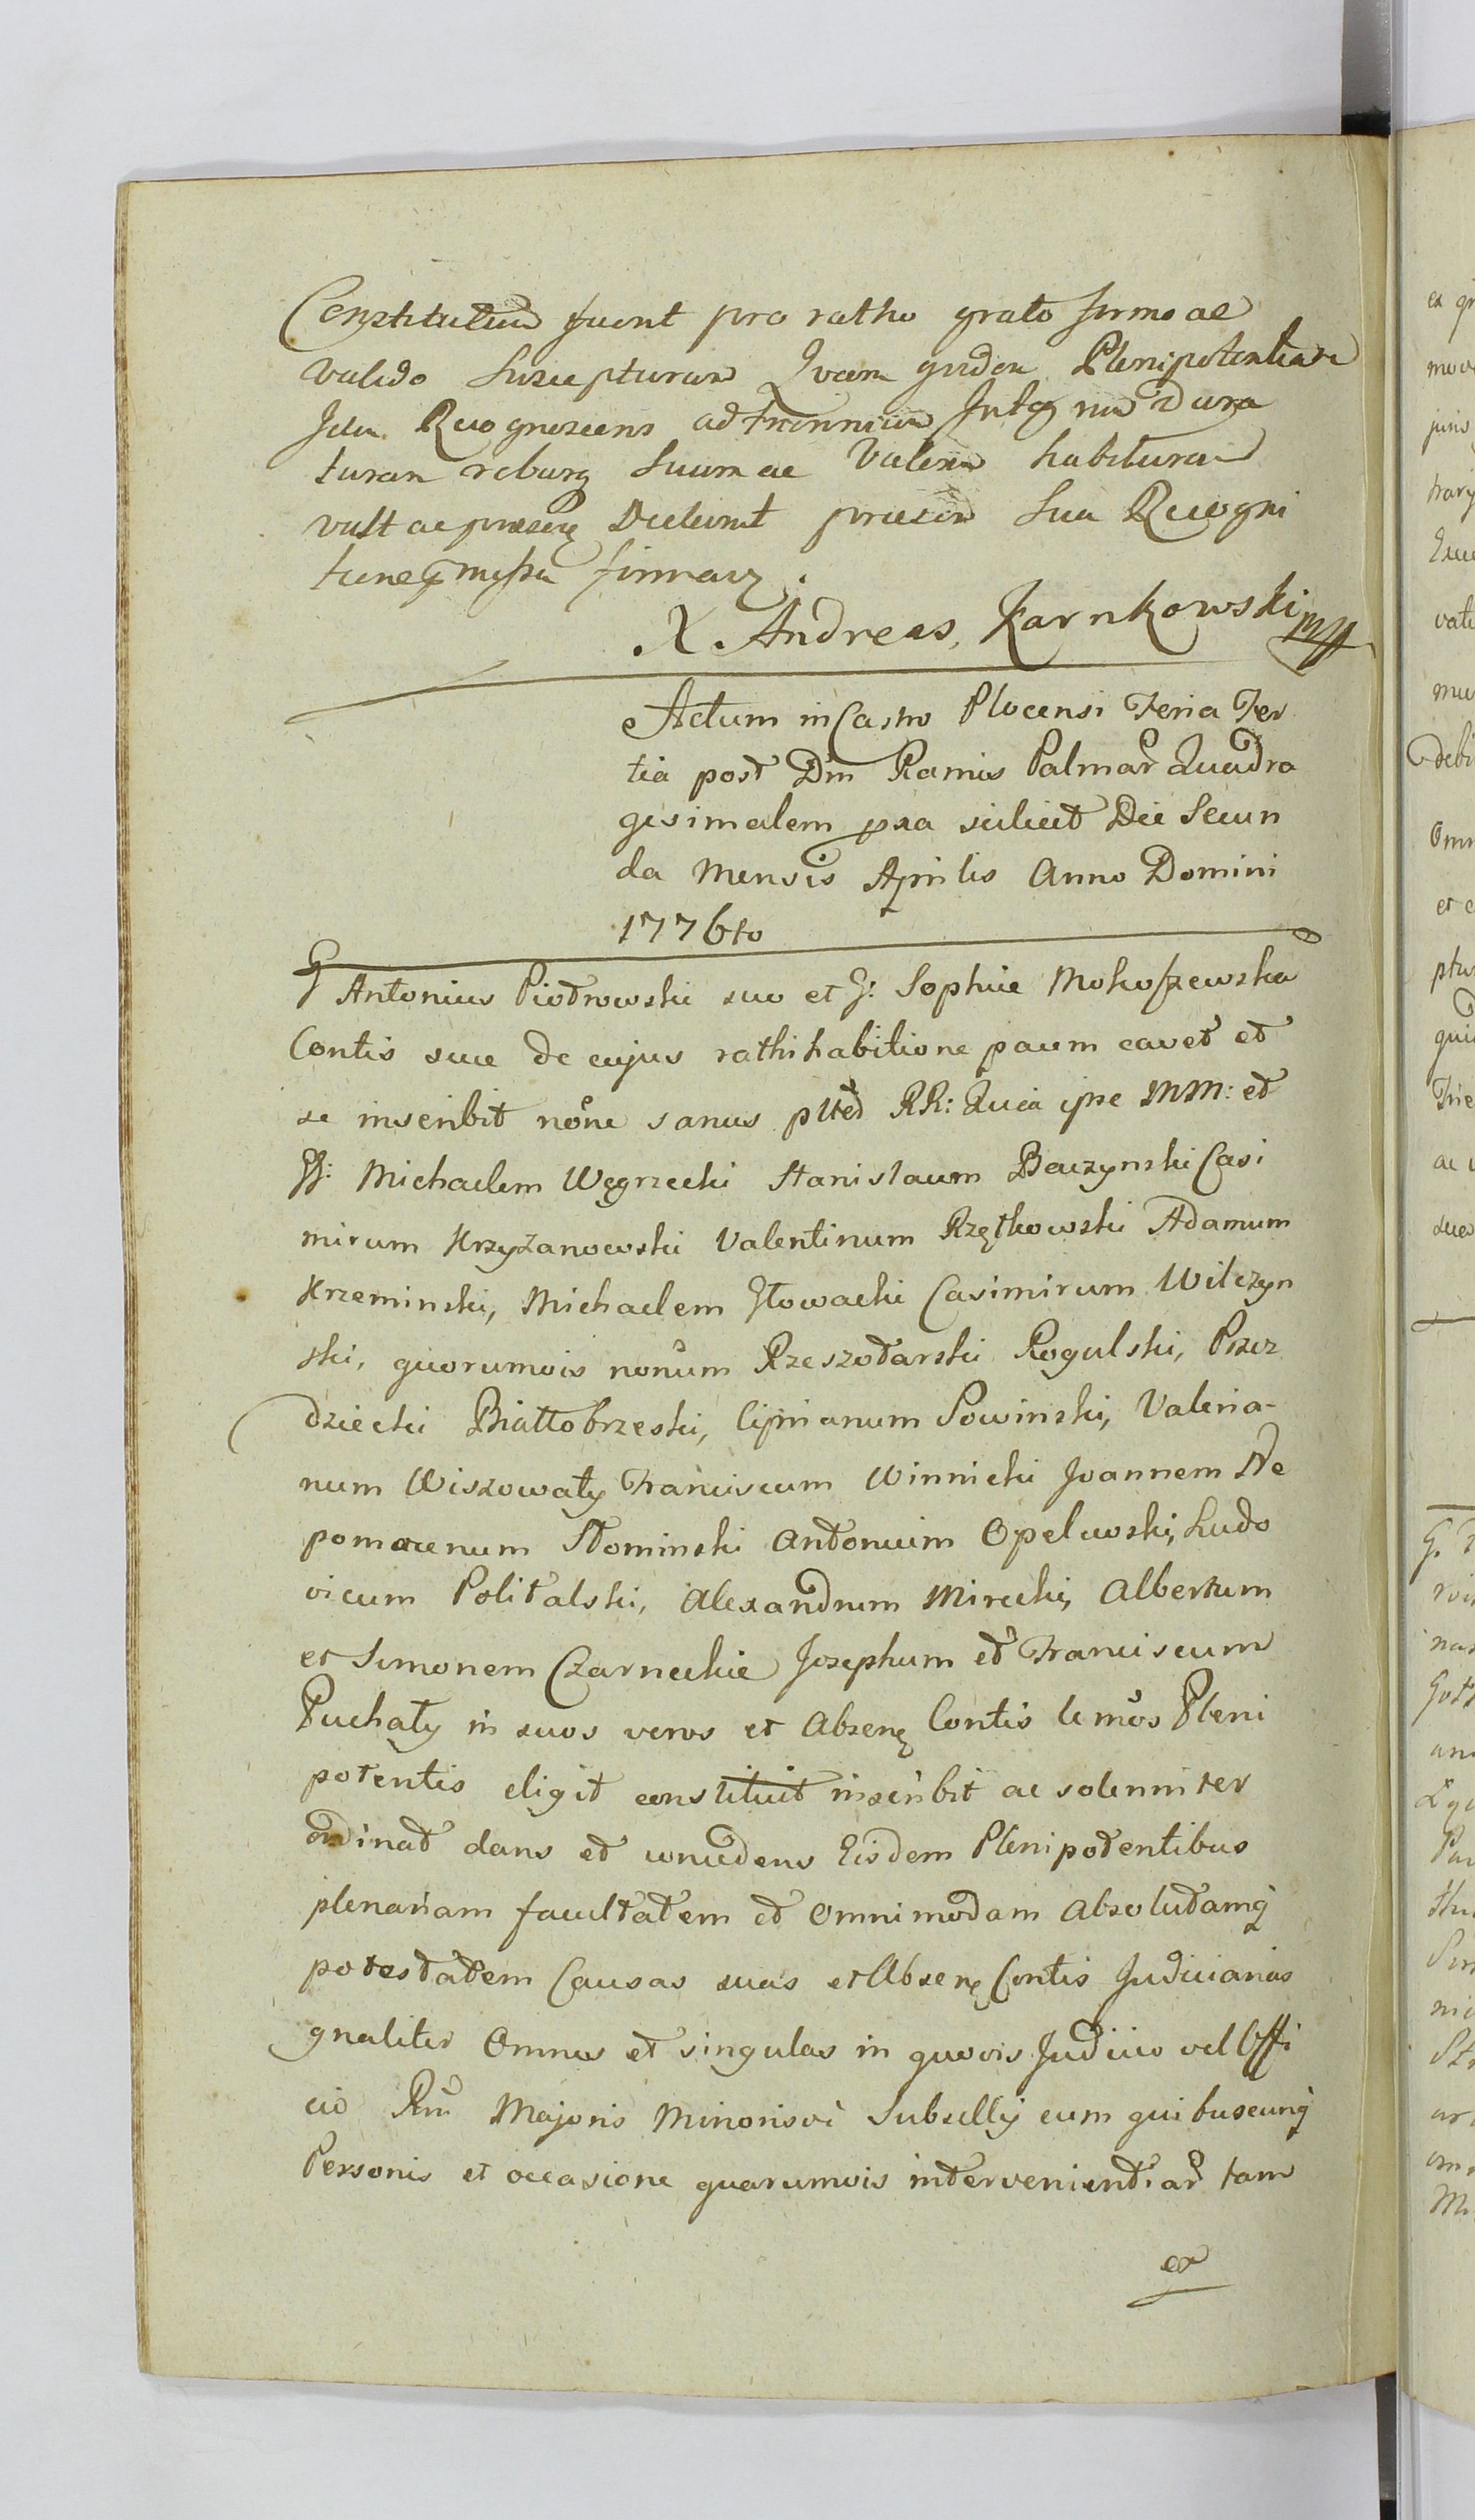 Constitutum fuerit pro ratho grato firmo ac
valido Suscepturum Quam quidem Plenipotentiam
Idem Recognoscens ad triennium Integrum Dura
turam roburq Suum ac Valorem habituram
vult ac Declarat Sua Recogni
tione mssa
X. Andreas Karnkowski mp
Actum in Castro Plocensi Feria Ter
tia post Dm Ramis Palmar Quadra
gesimalem pxa scilicet Die Secun
da Mensis Aprilis Anno Domini
1776to
G Antonius Piotrowski suo et G: Sophiae Mokoszewska
Contis suae de cujus rathihabitione paum cavet et
se inscribit none sanus ptted RR: Quia ipse MM: et
GG: Michaelem Węgrzecki Stanislaum Baczynski Casi
mirum Krzyżanowski Valentinum Rzętkowski Adamum
Krzeminski, Michaelem Głowacki Casimirum Wilczyn
ski, quorumvis nonum Rzeszotarski Rogulski, Przez
dziecki Białłobrzeski, Ciprianum Sowinski, Valeria-
num Wiszowaty Franciscum Winnicki Joannem Ne
pomucenum Słominski Antonium Opelewski, Ludo
vicum Politalski, Alexandrum Mirecki, Albertum
et Simonem Czarneckie Josephum et Franciscum
Puchaty in suos veros et Absenq Contis lemos Pleni
potentis eligit constituit inscribit ac solenniter
ordinat dans et concedens Eisdem Plenipotentibus
plenariam facultatem et omnimodam absolutamq
potestatem Causas suas et Absenq Contis Judiciarias
gnaliter Omnes et singulas in quovis Judicio vel Offi
cio Rni Majoris Minorisvi Subsellij cum quibuscunq
Personis et occasione quarumvis intervenientiar tam
ex